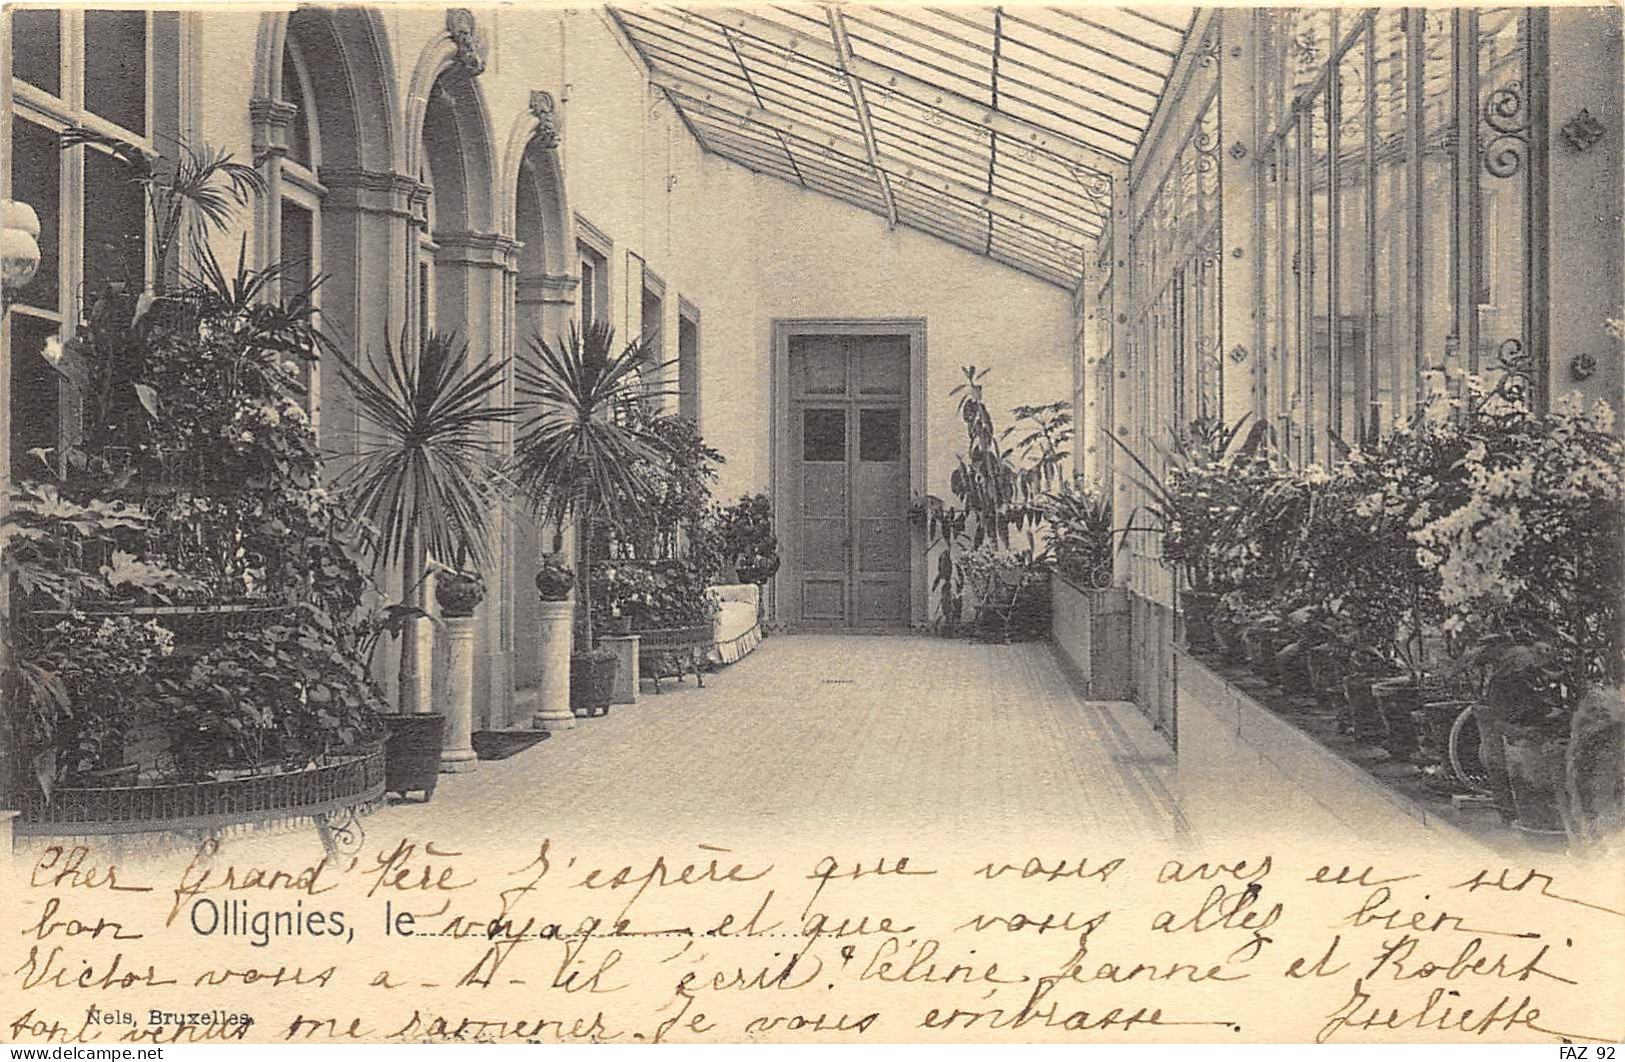 Cher Grand' Père J'espère que vous avez eu un
bon voyage, et que vous allez bien
Ollignies, le
Victor vous a-t-il écrit? Céline Jeanne et Robert
Nels, Bruxelles.
sont venus me ramener. Je vous embrasse. Juliette
FAZ 92